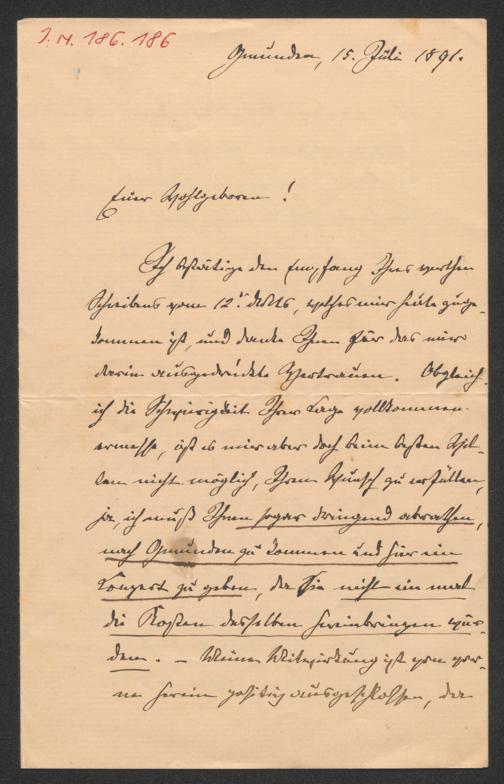 I. N. 186.186
Gmunden, 15. Juli 1891.
Euer Wohlgeboren!
Ich bestätige den Empfang Ihres werthen
Schreibens vom 12. d. Mts, welches mir heute zuge-
kommen ist, und danke Ihnen für das mir
darin ausgedrückte Vertrauen. Obgleich
ich die Schwierigkeit Ihrer Lage vollkommen
ermesse, ist es mir aber doch beim besten Wil-
len nicht möglich, Ihren Wunsch zu erfüllen,
ja, ich muß Ihnen sogar dringend abrathen,
nach Gmunden zu kommen und hier ein
Konzert zu geben, da Sie nicht ein mal
die Kosten desselben hereinbringen wür-
den. – Meine Mitwirkung ist von vorn-
herein positiv ausgeschlossen, da